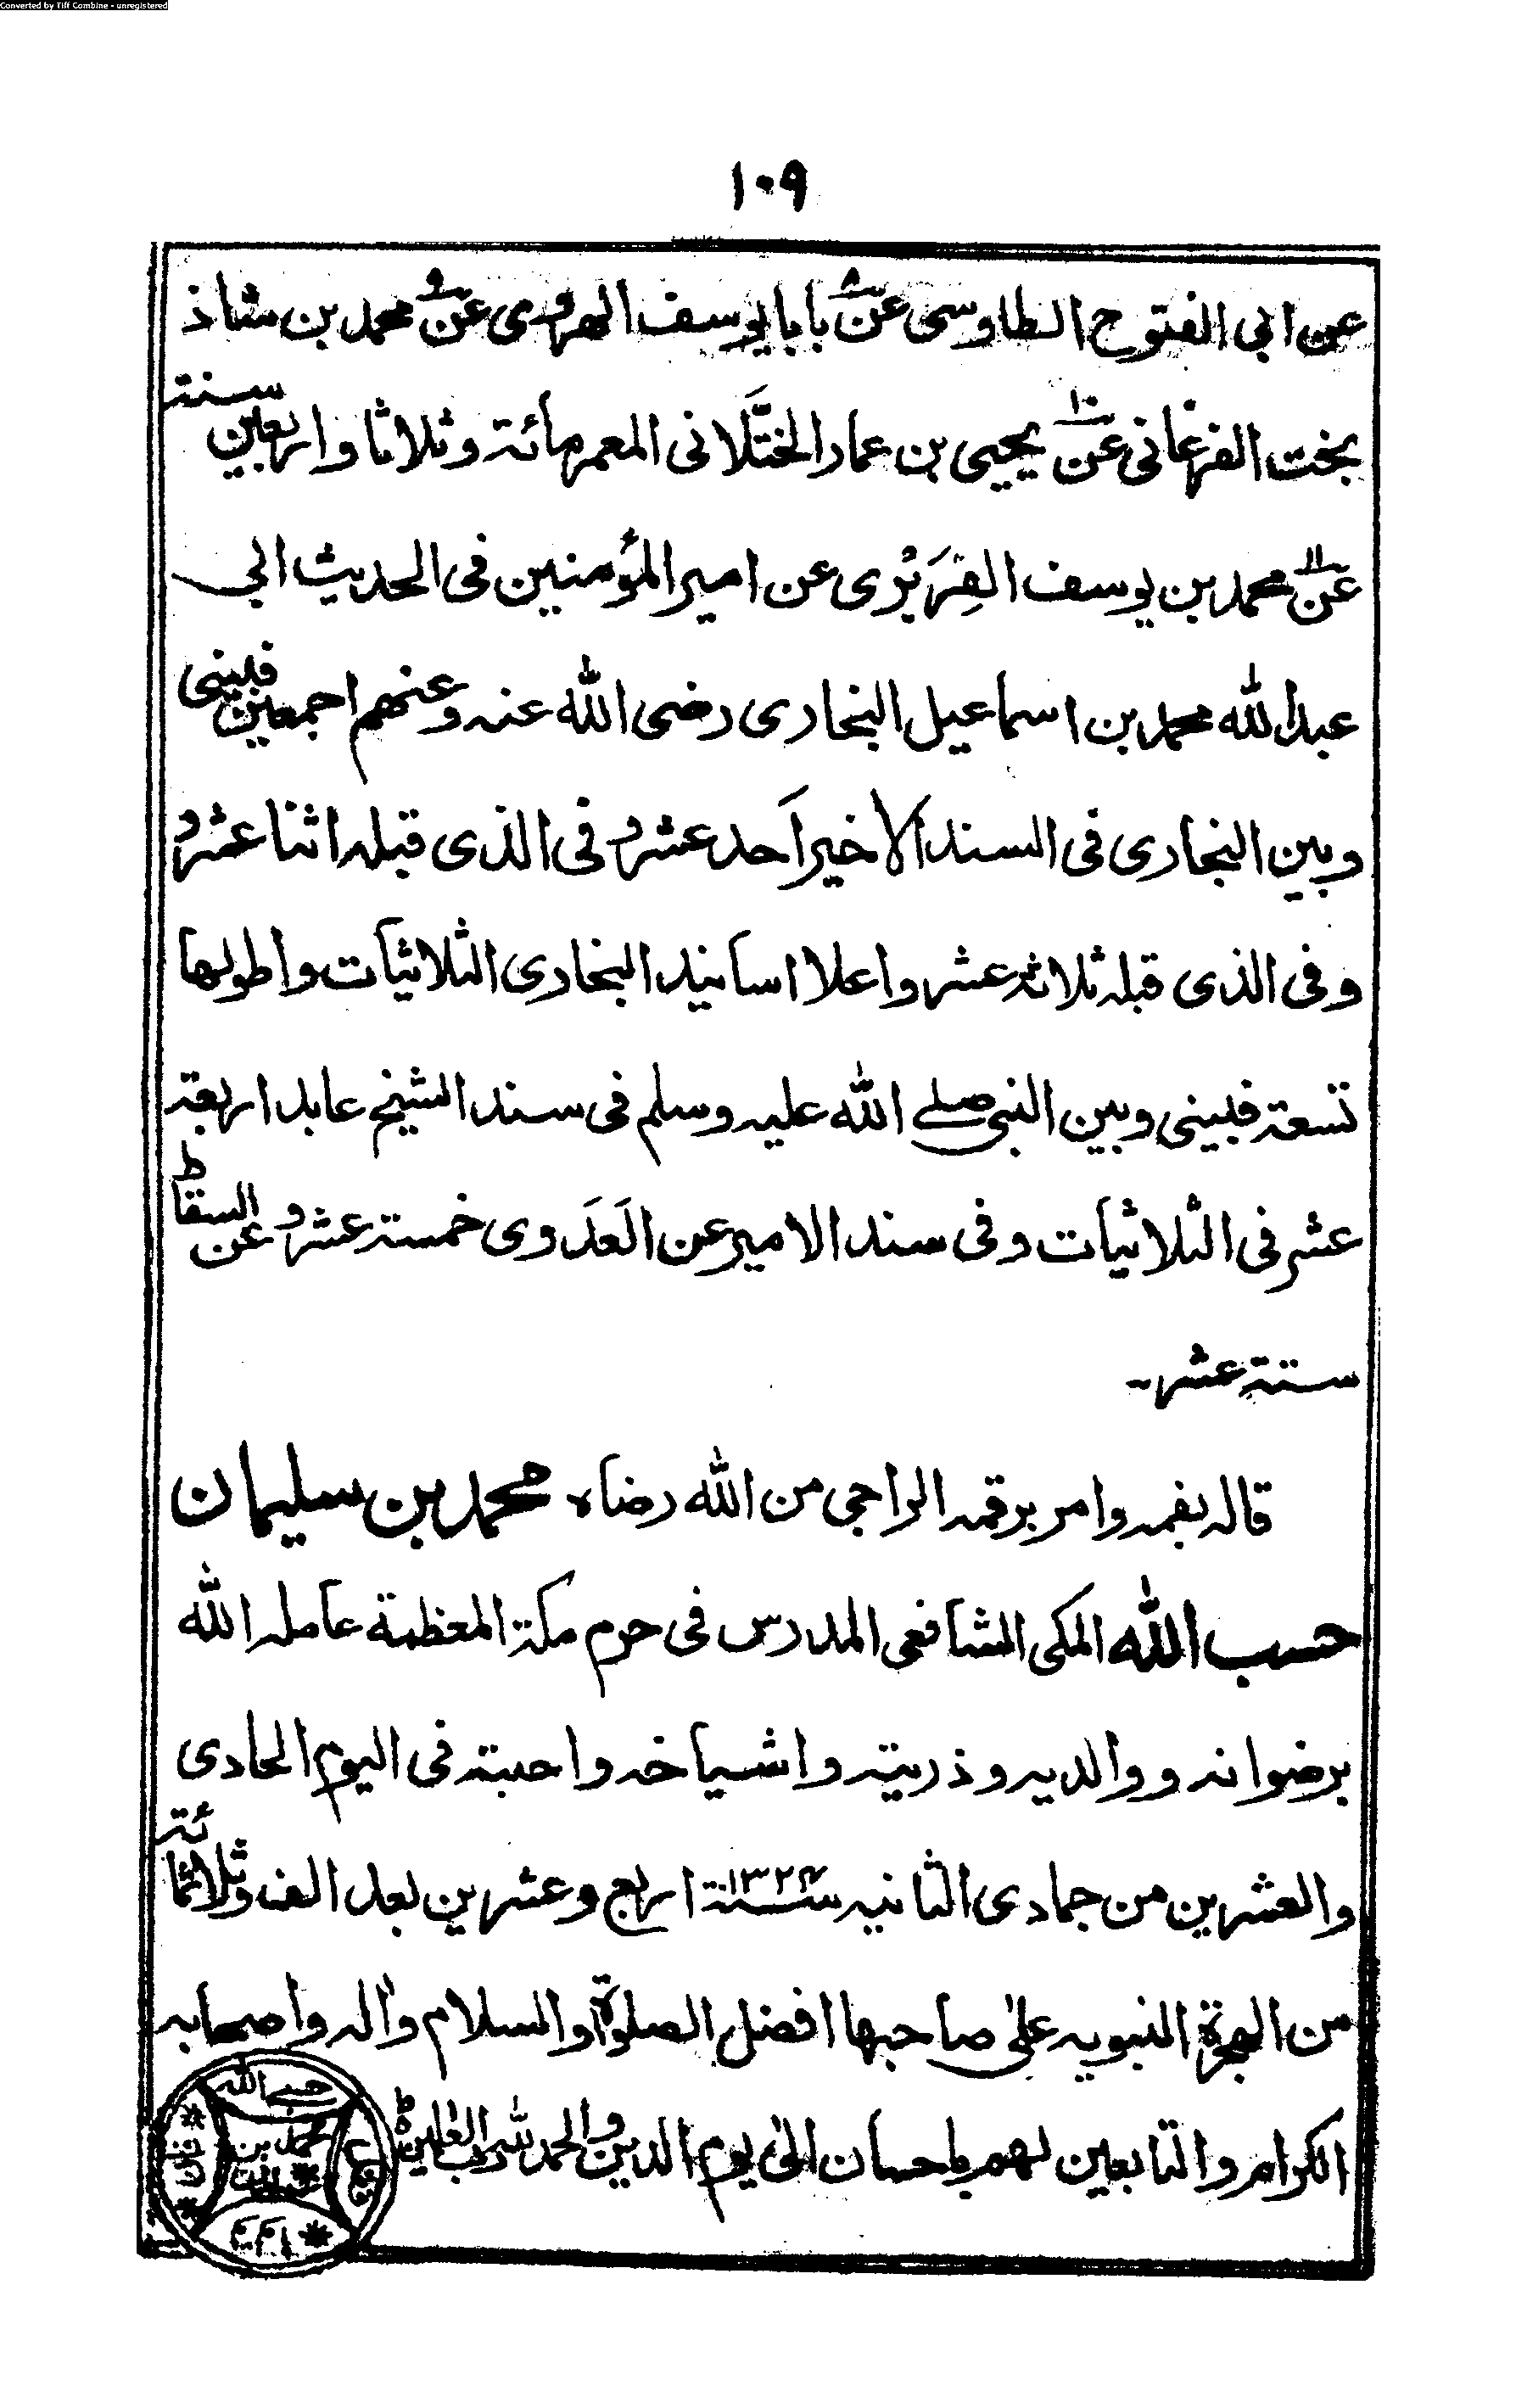 Converted by Tiff Combine - unregistered
١٠٩
عن ابى الفتوح الطاوسى عن٨ بابا يوسف الهروى عن٩ محمد بن شاذ
بخت الفرغانى عن١٠ يحيى بن عمار الختَّلانى المعمر مائة وثلاثا واربعين سنة
عن١١ محمد بن يوسف الفِرَبْرى عن امير المؤمنين فى الحديث ابى
عبد الله محمد بن اسماعيل البخارى رضى الله عنه وعنهم اجمعين فبينى
وبين البخارى فى السند الاخير اَحد عشر و فى الذى قبله اثنا عشر و
وفى الذى قبله ثلاثة عشر واعلا اسانيد البخارى الثلاثيات واطولها
تسعة فبينى وبين النبى صلے الله عليه وسلم فى سند الشيخ عابد اربعة
عشر فى الثلاثيات وفى سند الامير عن العَدَوى خمسة عشر و عن السقاط
ستة عشر ـ
قاله بفمه وامر برقمه الراجى من الله رضاه محمد بن سليمان
حسب الله المكى الشافعى المدرس فى حرم مكة المعظمة عامله الله
برضوانه ووالديه وذريته واشياخه واحبته فى اليوم الحادى
والعشرين من جمادى الثانيه سنة ١٣٢٤ اربع وعشرين بعد الف وثلاثمائة
من الهجرة النبويه على صاحبها افضل الصلوة والسلام واٰله واصحابه
الكرام والتابعين لهم باحسان الىٰ يوم الدين والحمد لله رب العٰلمين ط
حسب الله
محمد بن